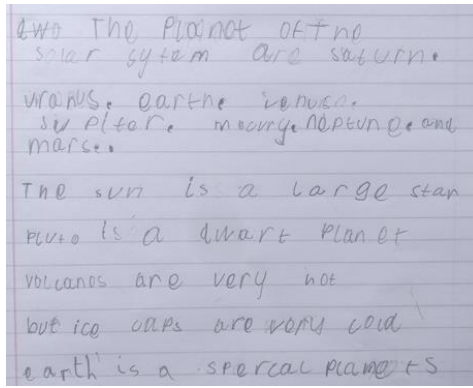 two The Planot of The
solar sytem are saturn.
uranus. earthe venusn.
Jupiter. mecury. neptune. and
marse.
The sun is a large star
Pluto is a dwarf Planet
volcanos are very hot
but ice caps are very cold
earth is a spercal planets